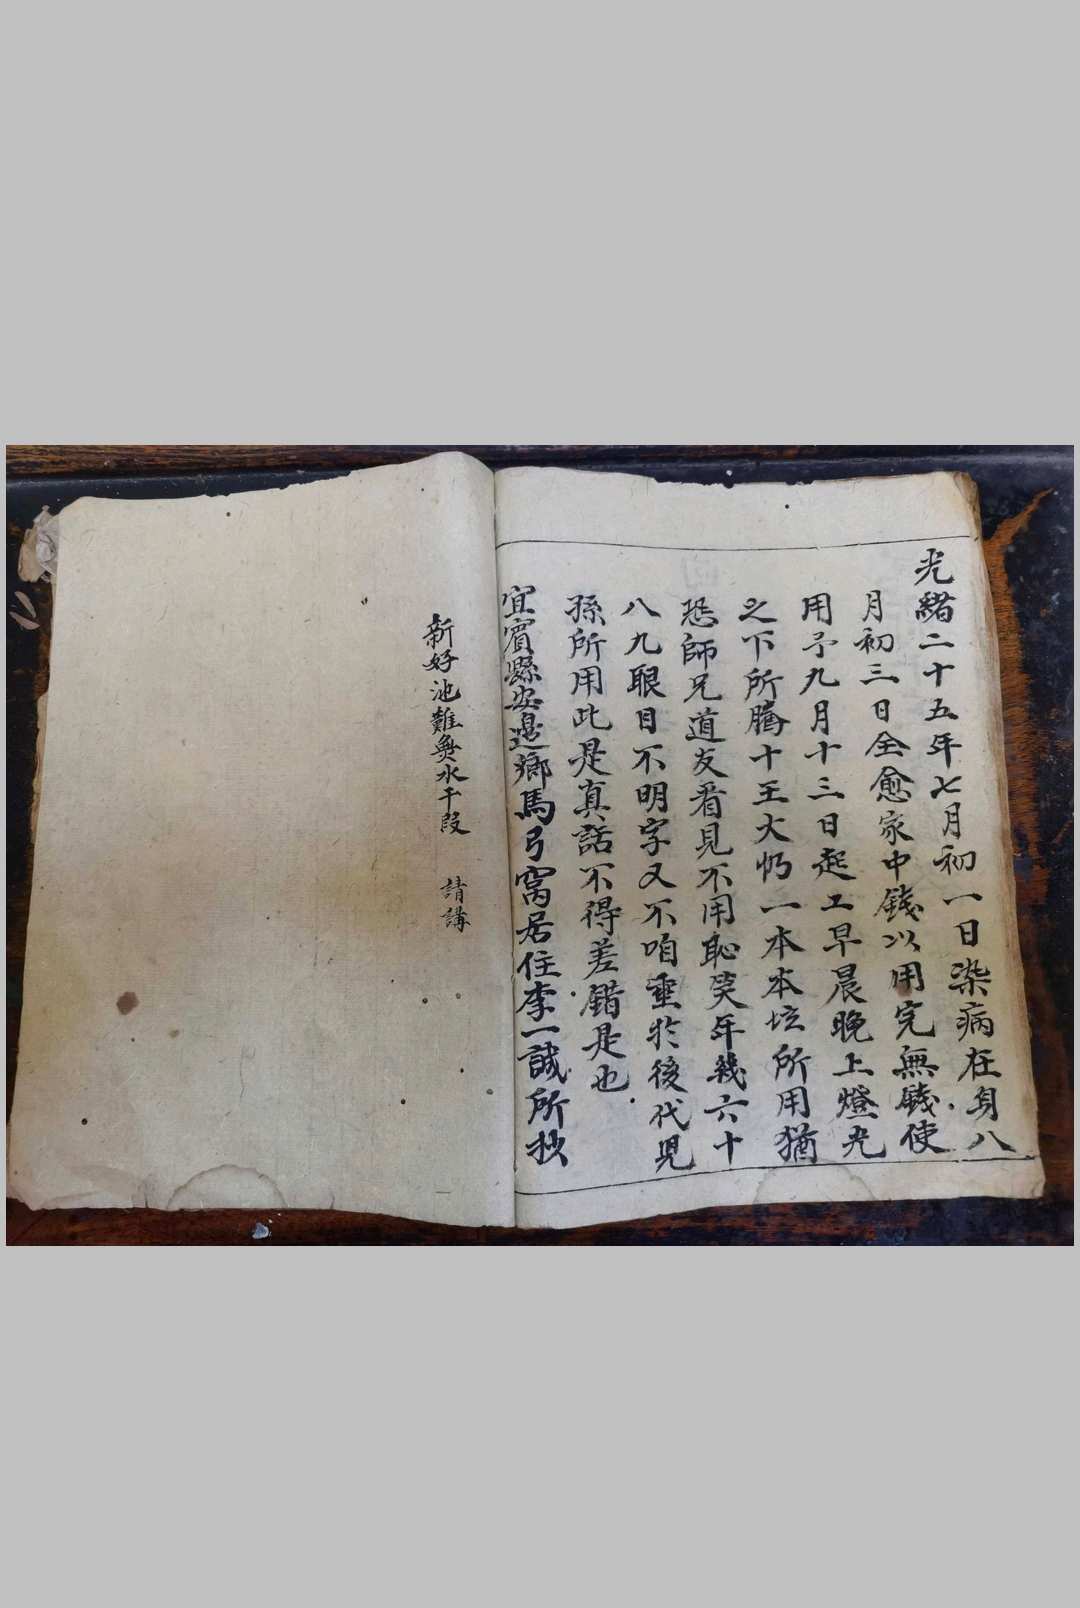 光緒二十五年七月初一日染病在身八
月初三日全愈家中錢以用完無錢使
用予九月十三日起工早晨晚上燈光
之下所謄十王大忏一本本坛所用猶
恐師兄道友看見不用恥笑年幾六十
八九眼目不明字又不咱垂於後代児
孫所用此是真話不得差錯是也
宜賓縣安邉鄉馬弓窩居住李一誠所抄
新好池難無水干段 請講